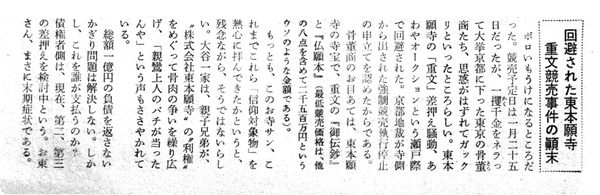 回避された東本願寺
重文競売事件の顚末
ボロいもうけになるところだ
った。競売予定日は一月二十五
日だったが、一攫千金をネラっ
て大挙京都に下った東京の骨董
商たち、思惑がはずれてガック
リといったところらしい。東本
願寺の「重文」差押え騒動、あ
わやオークションという瀬戸際
で回避された。京都地裁が寺側
から出された強制競売執行停止
の申立てを認めたからである。
骨董商のお目あては、東本願
寺の寺宝で、重文の『御伝鈔』
と『仏願本』(最低競売価格は、他
の八点を含めて二千五百万円という
ウソのような金額である)。
もっとも、このお寺サン、こ
れまでこれら「信仰対象物」を
熱心に拝んできたかというと、
残念ながら、そうではないらし
い。大谷一家は、親子兄弟が、
〝株式会社東本願寺〟の〝利権〟
をめぐって骨肉の争いを繰り広
げ、「親鸞上人のバチが当った
んやろ」という声もささやかれて
いる。
総額一億円の負債を返さない
かぎり問題は解決しない。しか
し、これを誰が支払うのか?
債権者側は、現在、第二、第三
の差押えを検討中という。お東
さん、まさに末期症状である。